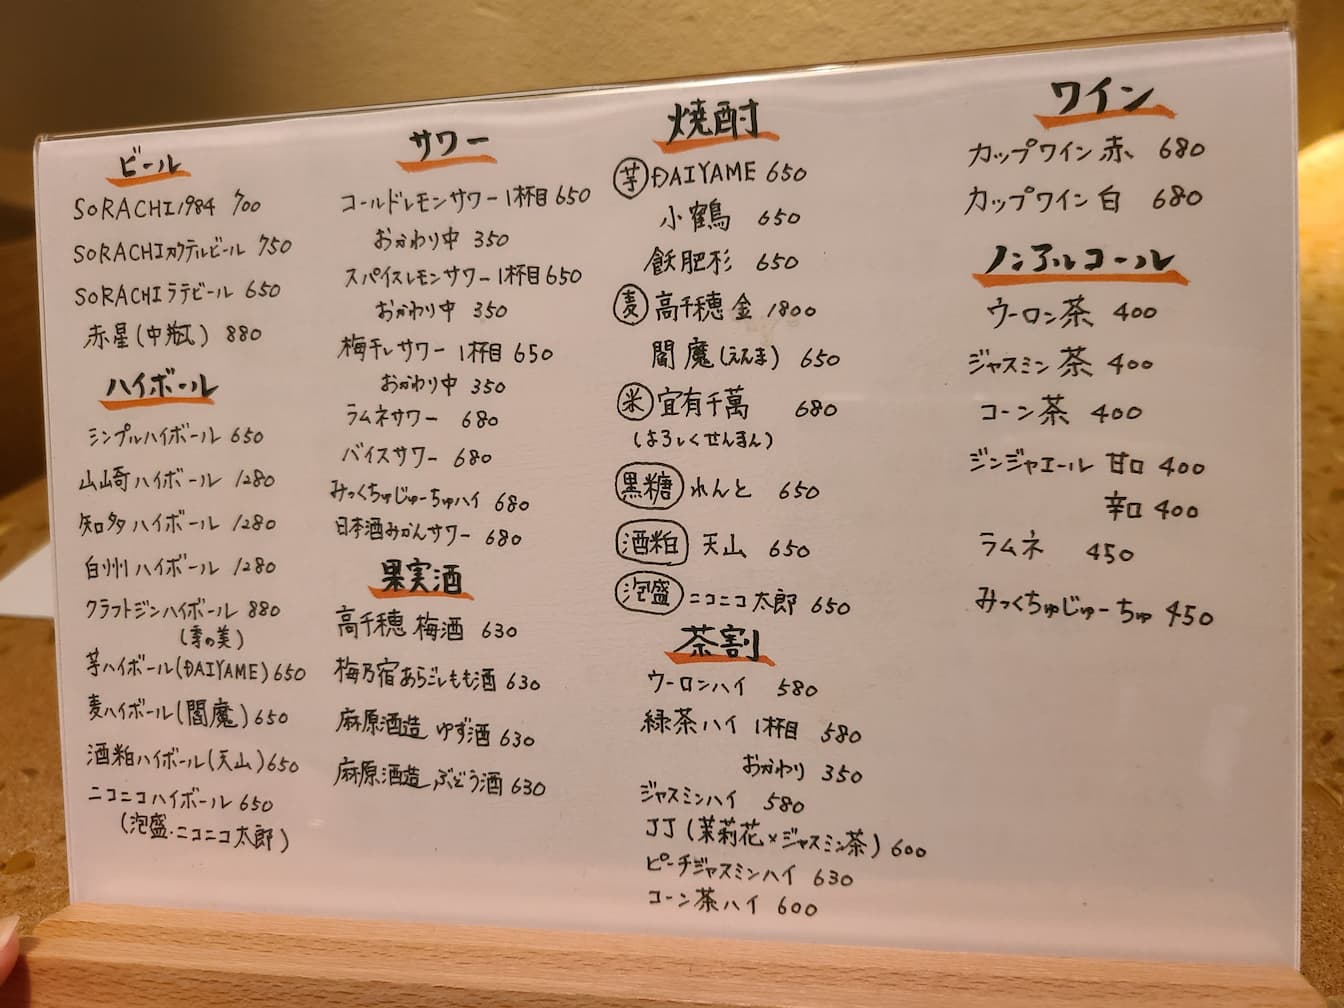 ビール
SORACHI1984 700
SORACHIカクテルビール 750
SORACHIラテビール 650
赤星(中瓶) 880
ハイボール
シンプルハイボール 650
山崎ハイボール 1280
知多ハイボール 1280
白州ハイボール 1280
クラフトジンハイボール 880
(季の美)
芋ハイボール(DAIYAME) 650
麦ハイボール(閻魔) 650
酒粕ハイボール(天山) 650
ニコニコハイボール 650
(泡盛・ニコニコ太郎)
サワー
コールドレモンサワー 1杯目 650
おかわり中 350
スパイスレモンサワー 1杯目 650
おかわり中 350
梅干しサワー 1杯目 650
おかわり中 350
ラムネサワー 680
バイスサワー 680
みっくちゅじゅーちゅハイ 680
日本酒みかんサワー 680
果実酒
高千穂 梅酒 630
梅乃宿あらごしもも酒 630
麻原酒造 ゆず酒 630
麻原酒造 ぶどう酒 630
焼酎
芋 DAIYAME 650
小鶴 650
飫肥杉 650
麦 高千穂 金 1800
閻魔(えんま) 650
米 宜有千萬 680
(よろしくせんまん)
黒糖 れんと 650
酒粕 天山 650
泡盛 ニコニコ太郎 650
茶割
ウーロンハイ 580
緑茶ハイ 1杯目 580
おかわり 350
ジャスミンハイ 580
JJ(茉莉花×ジャスミン茶) 600
ピーチジャスミンハイ 630
コーン茶ハイ 600
ワイン
カップワイン 赤 680
カップワイン 白 680
ノンアルコール
ウーロン茶 400
ジャスミン茶 400
コーン茶 400
ジンジャエール 甘口 400
辛口 400
ラムネ 450
みっくちゅじゅーちゅ 450